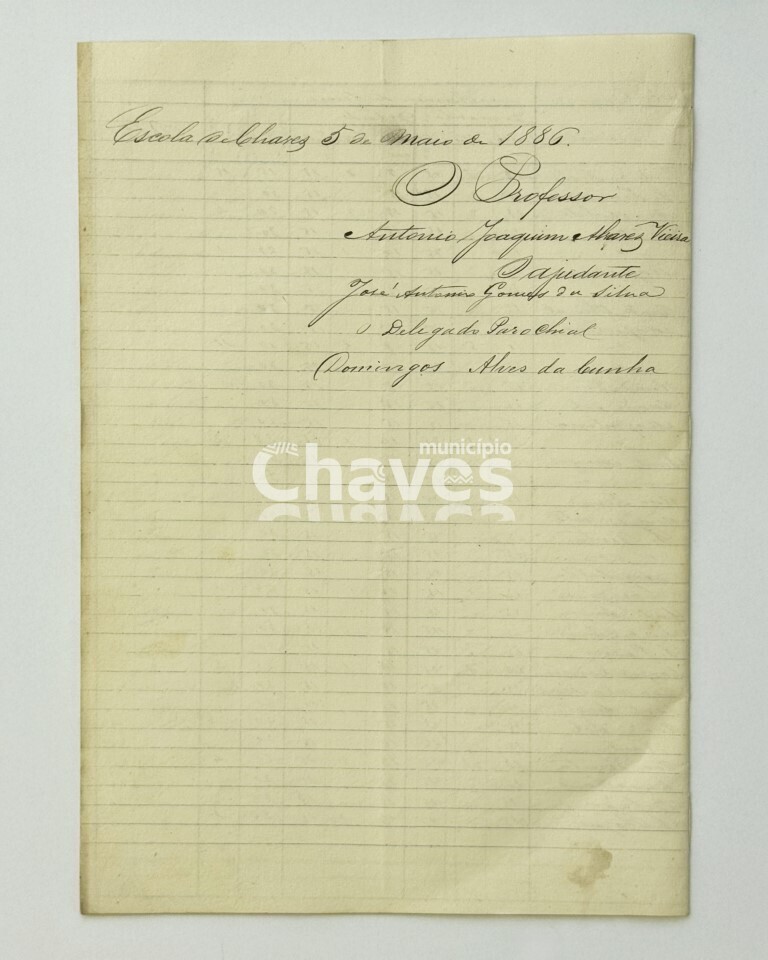 Escola de Chaves 5 de Maio de 1886.
O Professor
Antonio Joaquim Alvarez Vieira
O ajudante
José Antonio Gomes da Silva
O Delegado Parochial
Domingos Alves da Cunha
município
Chaves